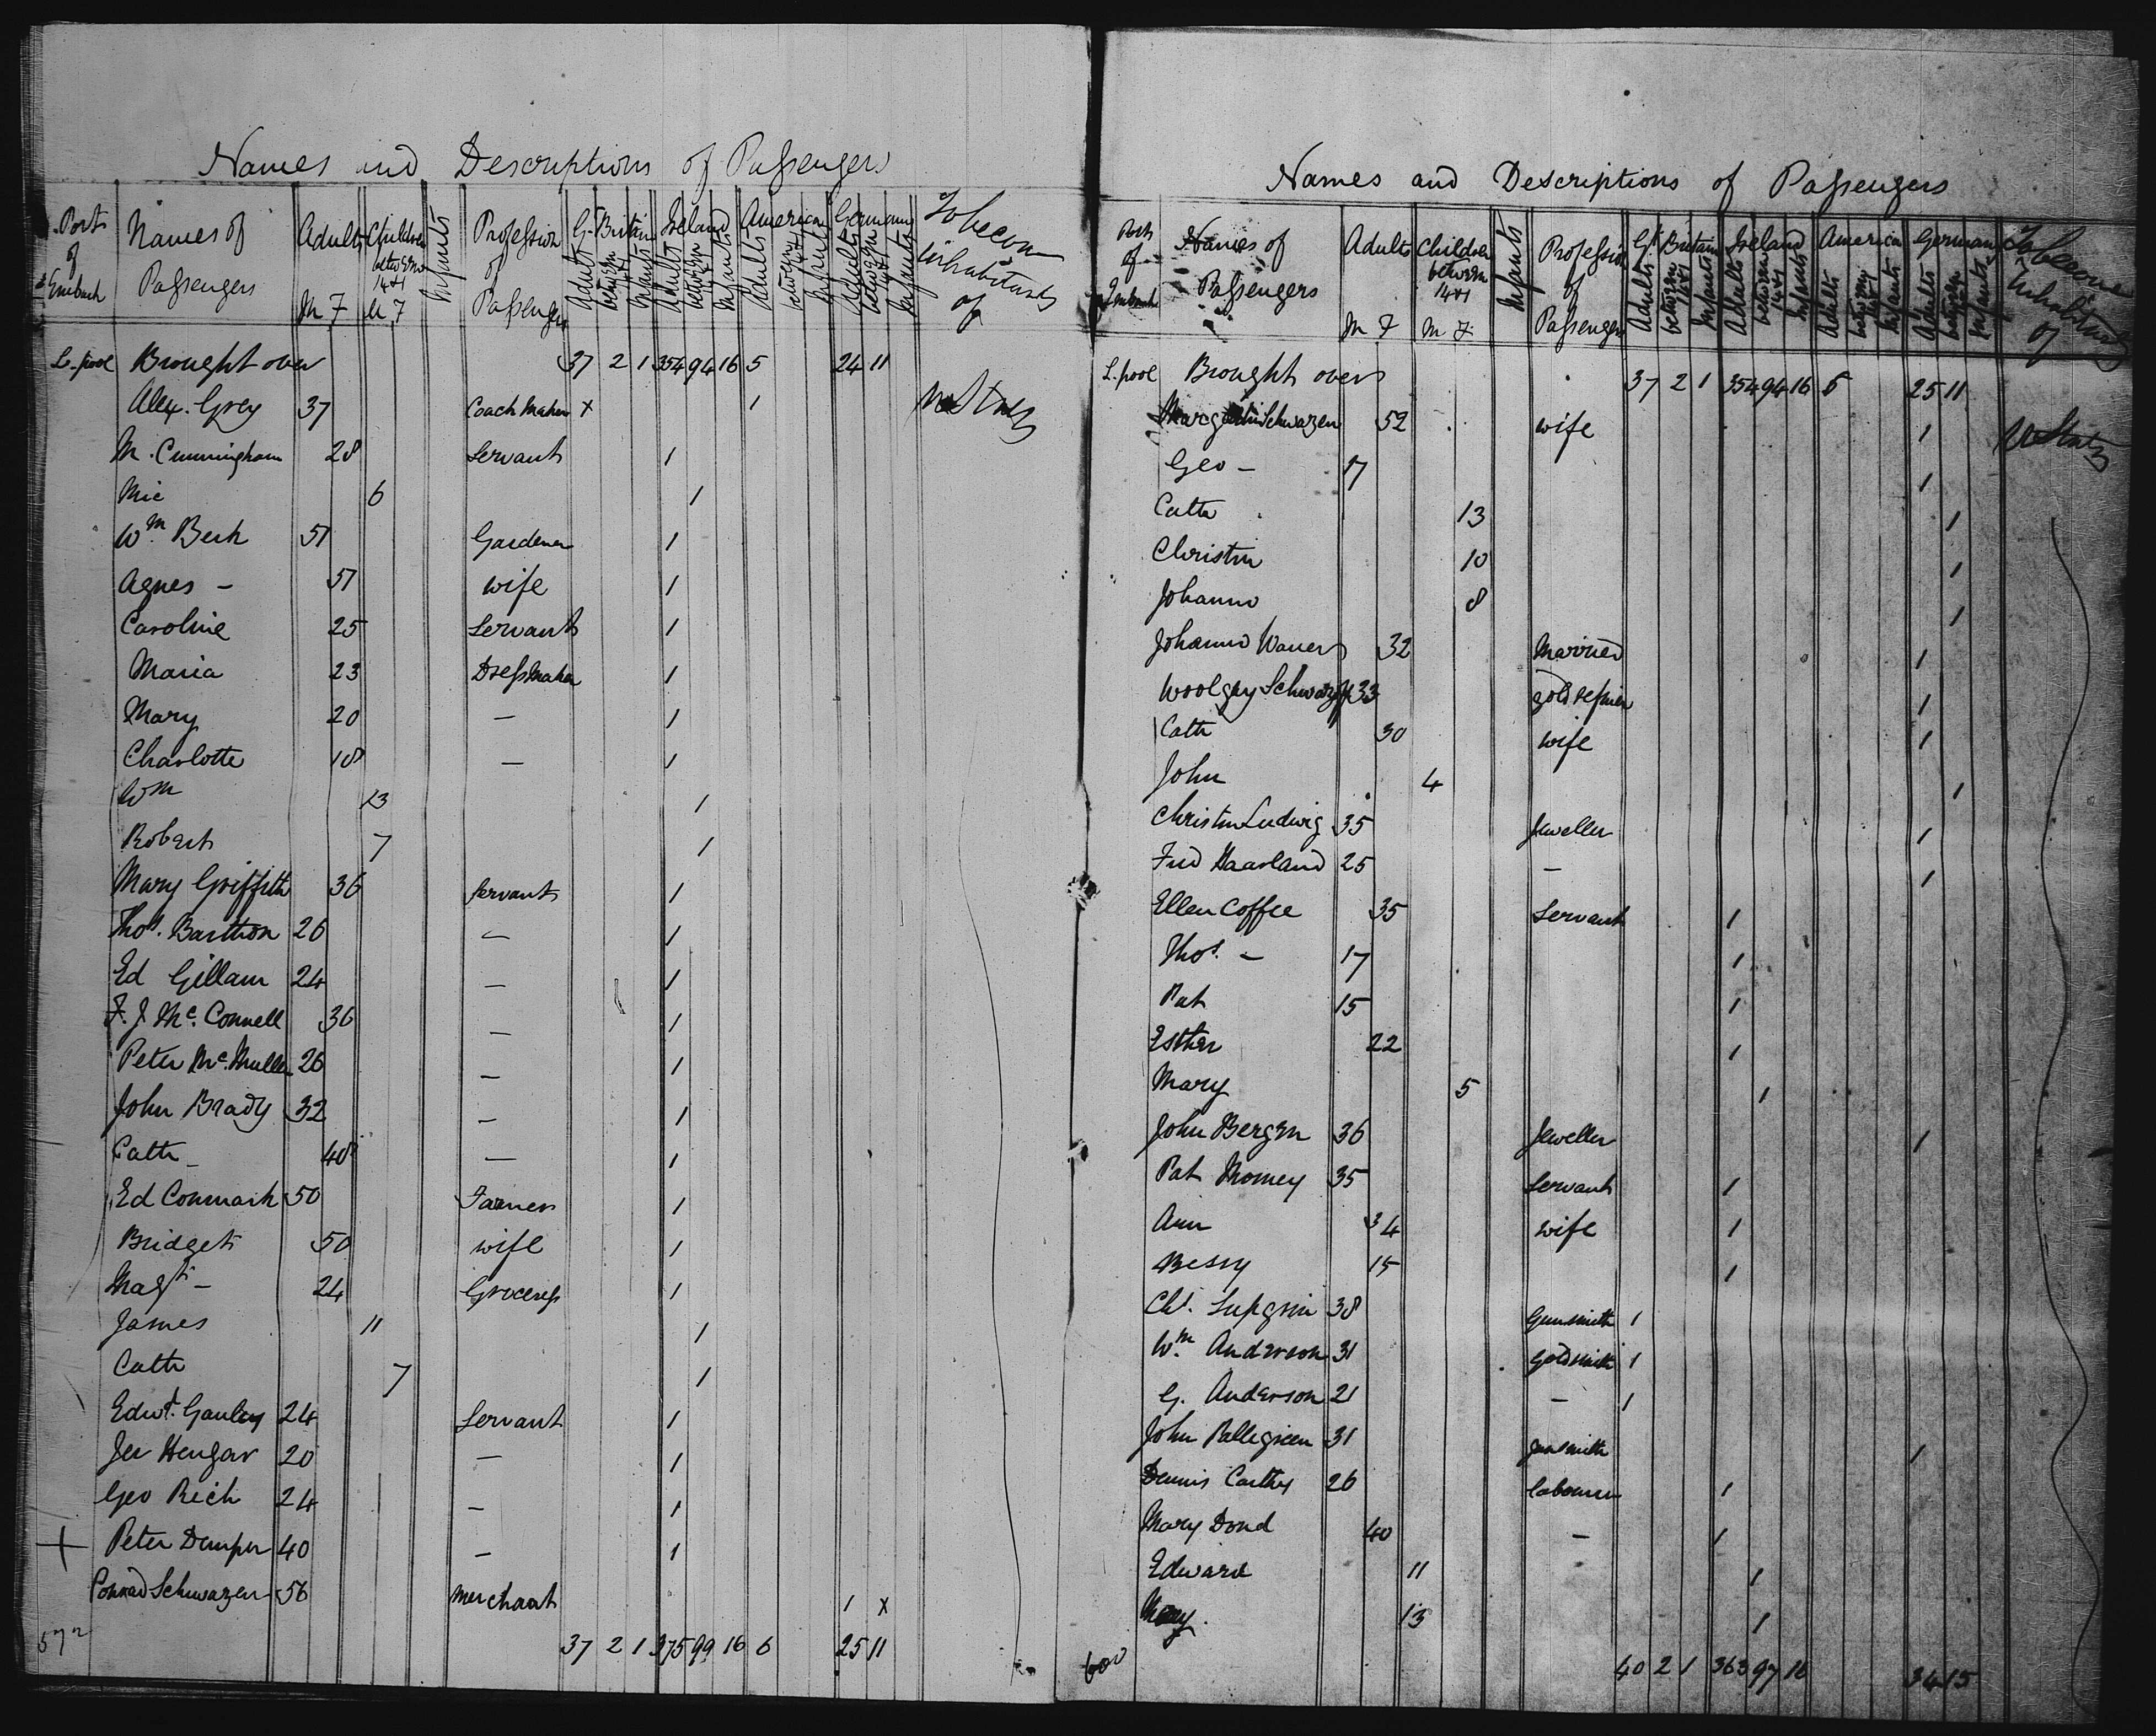 Names and Descriptions of Passengers
Port of Embark Names of Passengers Adults M F Children between 14 & 1 M F Infants Profession of Passengers Gt. Britain Adults between 14 & 1 Infants Ireland Adults between 14 & 1 Infants America Adults between 14 & 1 Infants Germany Adults between 14 & 1 Infants To become inhabitants of
L.pool Brought over 37 2 1 354 94 16 5 24 11
Alex. Grey 37 Coach Maker x 1 U States
M. Cunningham 28 Servant 1
Mic 6 1
Wm Beck 51 Gardener 1
Agnes – 51 wife 1
Caroline 25 Servant 1
Maria 23 Dressmaker 1
Mary 20 – 1
Charlotte 18 – 1
Wm 13 1
Robert 7 1
Mary Griffith 36 Servant 1
Thos. Barthon 26 – 1
Ed Gillam 24 – 1
F. J. Mc. Connell 36 – 1
Peter Mc. Mullen 26 – 1
John Brady 32 – 1
Cath – 40 – 1
Ed Conmark 50 Farmer 1
Bridget 50 wife 1
Magt – 24 Grocess 1
James 11 1
Cath 7 1
Edwd. Ganley 24 Servant 1
Jer Hengar 20 – 1
Geo Rich 24 – 1
+ Peter Demper 40 – 1
Conrad Schwazer 56 Merchant 1 x
572 37 2 1 375 99 16 6 25 11
Names and Descriptions of Passengers
Port of Embark Names of Passengers Adults M F Children between 14 & 1 M F Infants Profession of Passengers Gt Britain Adults between 14 & 1 Infants Ireland Adults between 14 & 1 Infants America Adults between 14 & 1 Infants Germany Adults between 14 & 1 Infants To become Inhabitants of
L.pool Brought over 37 2 1 354 94 16 5 25 11
Schwazen 52 wife 1 U States
Geo – 17 1
Cath 13 1
Christin 10 1
Johann 8 1
Johann Waner 32 Married 1
Woolgay 33 gold refiner 1
Cath 30 wife 1
John 4 1
Christn Ludwig 35 Jeweller 1
Fred Haarland 25 – 1
Ellen Coffee 35 Servant 1
Thos. – 17 1
Pat 15 1
Esther 22 1
Mary 5 1
John Bergen 36 Jeweller 1
Pat Momey 35 Servant 1
Ann 34 wife 1
Bessy 15 1
Chs. Supgrin 38 Gunsmith 1
Wm Anderson 31 Goldsmith 1
G. Anderson 21 – 1
John Pallegreen 31 Gunsmith 1
Dennis Carthy 26 labourer 1
Mary Dond 40 – 1
Edward 11 1
Mary 13 1
600 40 2 1 363 97 16 34 15